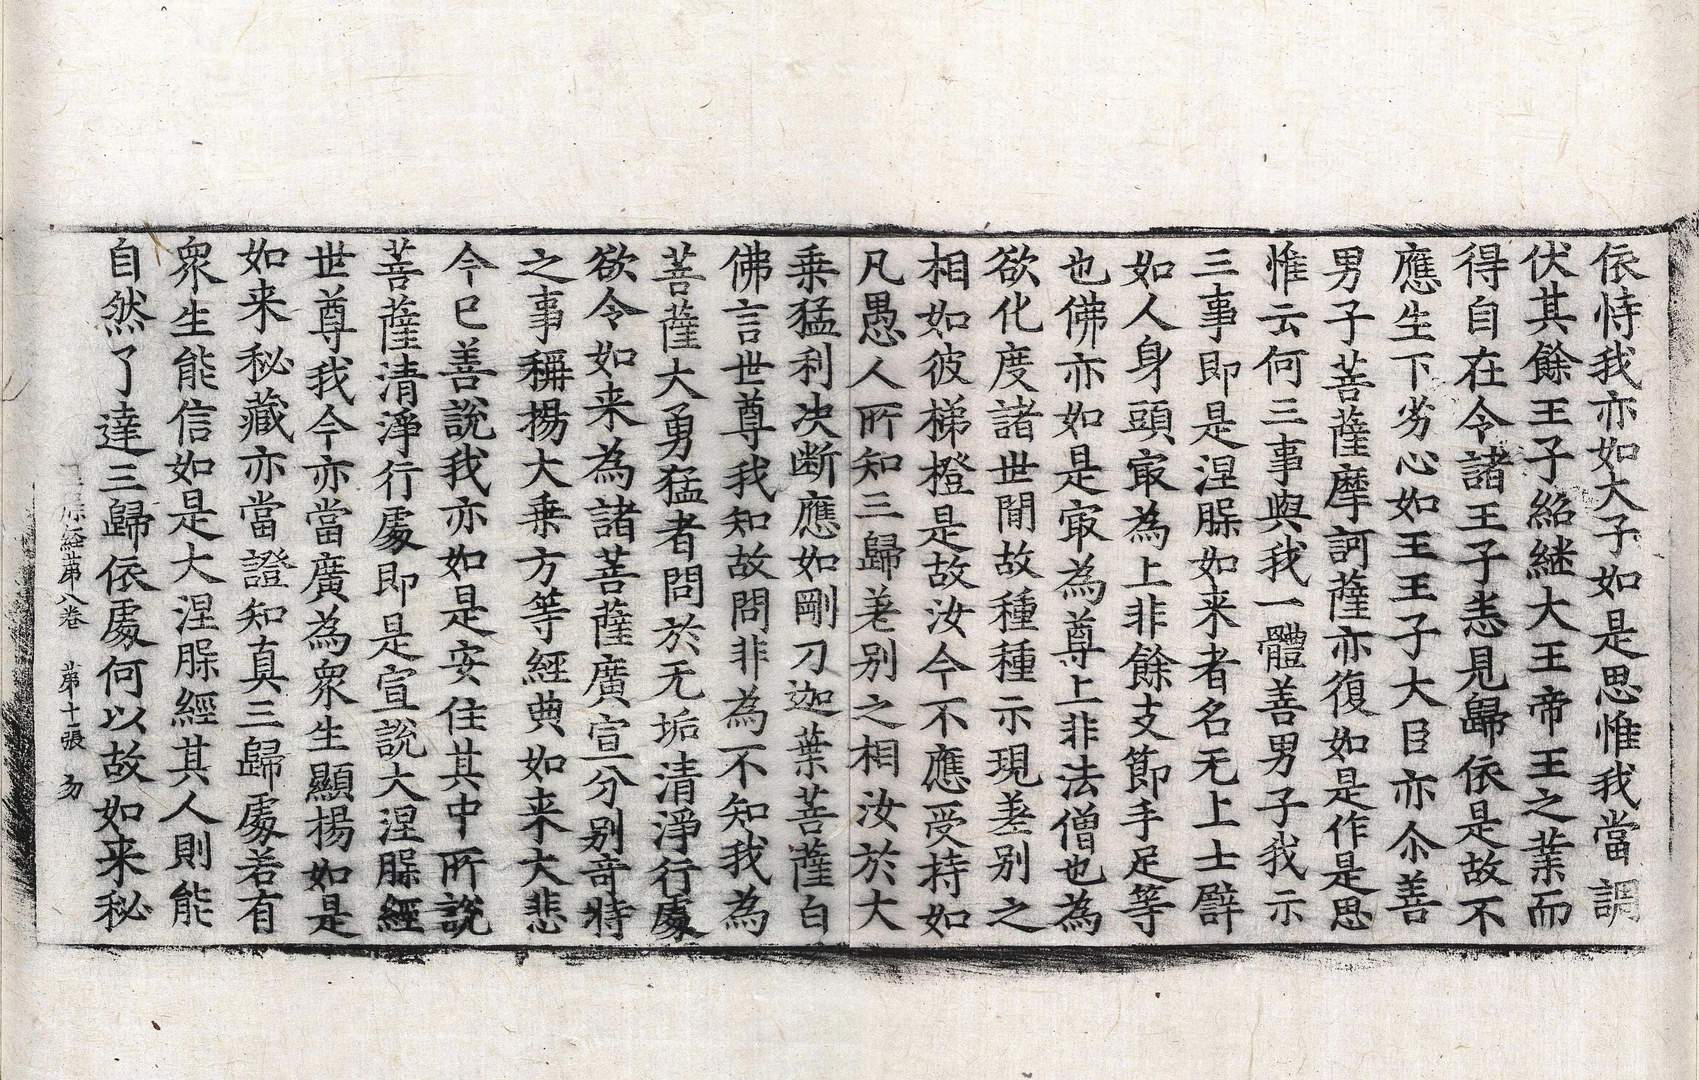 依恃我亦如大子如是思惟我當調
伏其餘王子紹継大王帝王之業而
得自在令諸王子恚見歸依是故不
應生下劣心如王王子大臣亦尒善
男子菩薩摩訶薩亦復如是作是思
惟云何三事與我一體善男子我示
三事即是涅槃如来者名无上士譬
如人身頭寂為上非餘支節手足等
也佛亦如是寂為尊上非法僧也為
欲化度諸世間故種種示現差別之
相如彼梯橙是故汝今不應受持如
凡愚人所知三歸差別之相汝於大
乗猛利决断應如剛刀迦葉菩薩白
佛言世尊我知故問非為不知我為
菩薩大勇猛者問於无垢清淨行處
欲令如来為諸菩薩廣宣分別竒特
之事稱揚大乗方等經典如来大悲
今已善說我亦如是安住其中所說
菩薩清淨行處即是宣說大涅槃經
世尊我今亦當廣為衆生顯揚如是
如来秘藏亦當證知真三歸處若有
衆生能信如是大涅槃經其人則能
自然了達三歸依處何以故如来秘
經苐八卷 苐十一張